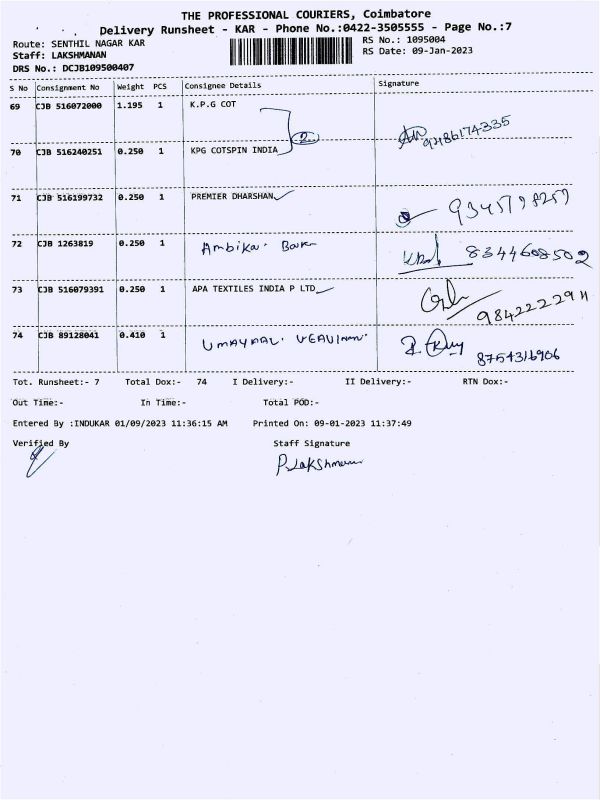 THE PROFESSIONAL COURIERS, Coimbatore
Delivery Runsheet - KAR - Phone No.:0422-3505555 - Page No.:7
Route: SENTHIL NAGAR KAR RS No.: 1095004
Staff: LAKSHMANAN RS Date: 09-Jan-2023
DRS No.: DCJB109500407
S No Consignment No Weight PCS Consignee Details Signature
69 CJB 516072000 1.195 1 K.P.G COT
2
70 CJB 516240251 0.250 1 KPG COTSPIN INDIA
71 CJB 516199732 0.250 1 PREMIER DHARSHAN
72 CJB 1263819 0.250 1 Ambika 8344608502
73 CJB 516079391 0.250 1 APA TEXTILES INDIA P LTD
9842222911
74 CJB 89128041 0.410 1 UMAYAAL
8754316906
Tot. Runsheet:- 7 Total Dox:- 74 I Delivery:- II Delivery:- RTN Dox:-
Out Time:- In Time:- Total POD:-
Entered By :INDUKAR 01/09/2023 11:36:15 AM Printed On: 09-01-2023 11:37:49
Verified By Staff Signature
P. Lakshmanan